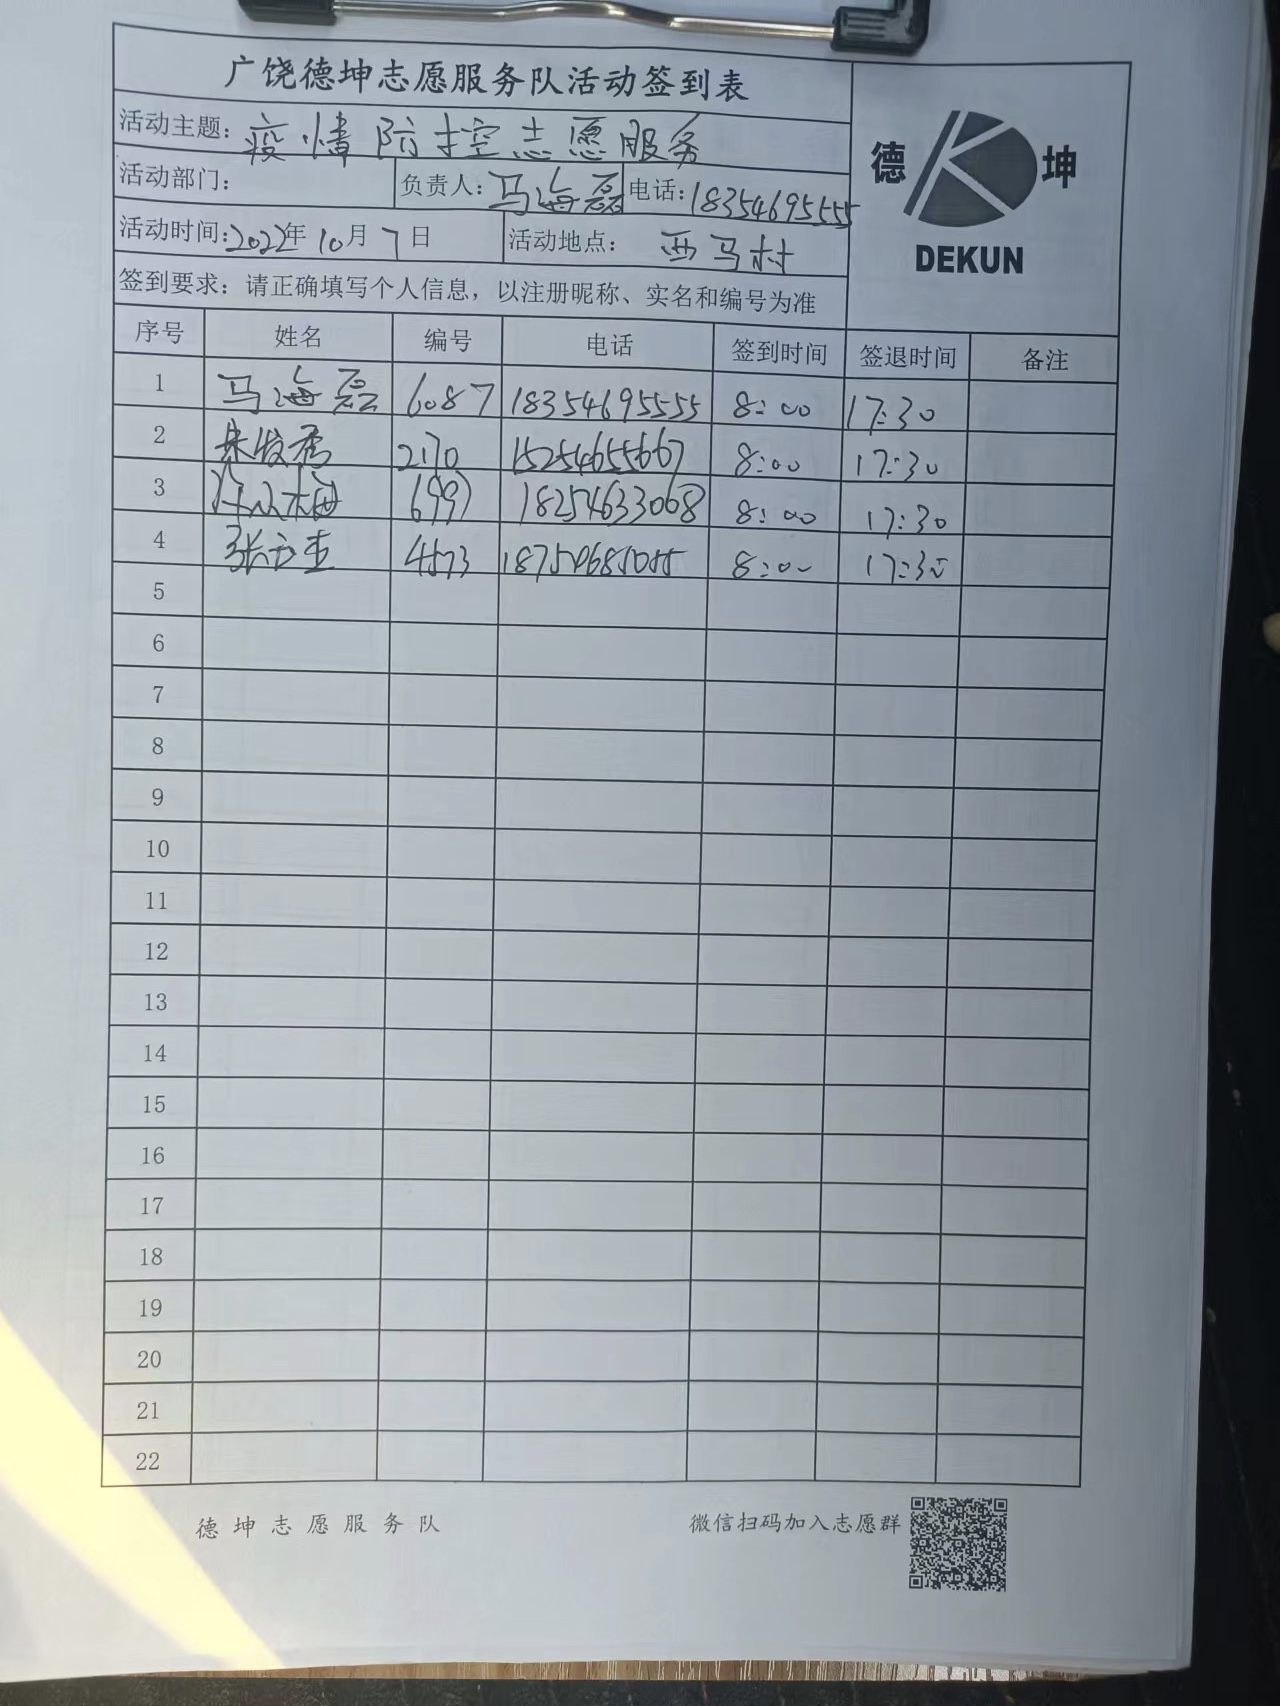 广饶德坤志愿服务队活动签到表
活动主题：疫情防控志愿服务
德 坤
DEKUN
活动部门： 负责人：马海磊 电话：18354695555
活动时间：2022年10月7日 活动地点： 西马村
签到要求：请正确填写个人信息，以注册昵称、实名和编号为准
序号 姓名 编号 电话 签到时间 签退时间 备注
1 马海磊 6087 18354695555 8:00 17:30
2 2170 15254655667 8:00 17:30
3 6997 18254633068 8:00 17:30
4 4573 8:00 17:30
5
6
7
8
9
10
11
12
13
14
15
16
17
18
19
20
21
22
德坤志愿服务队 微信扫码加入志愿群